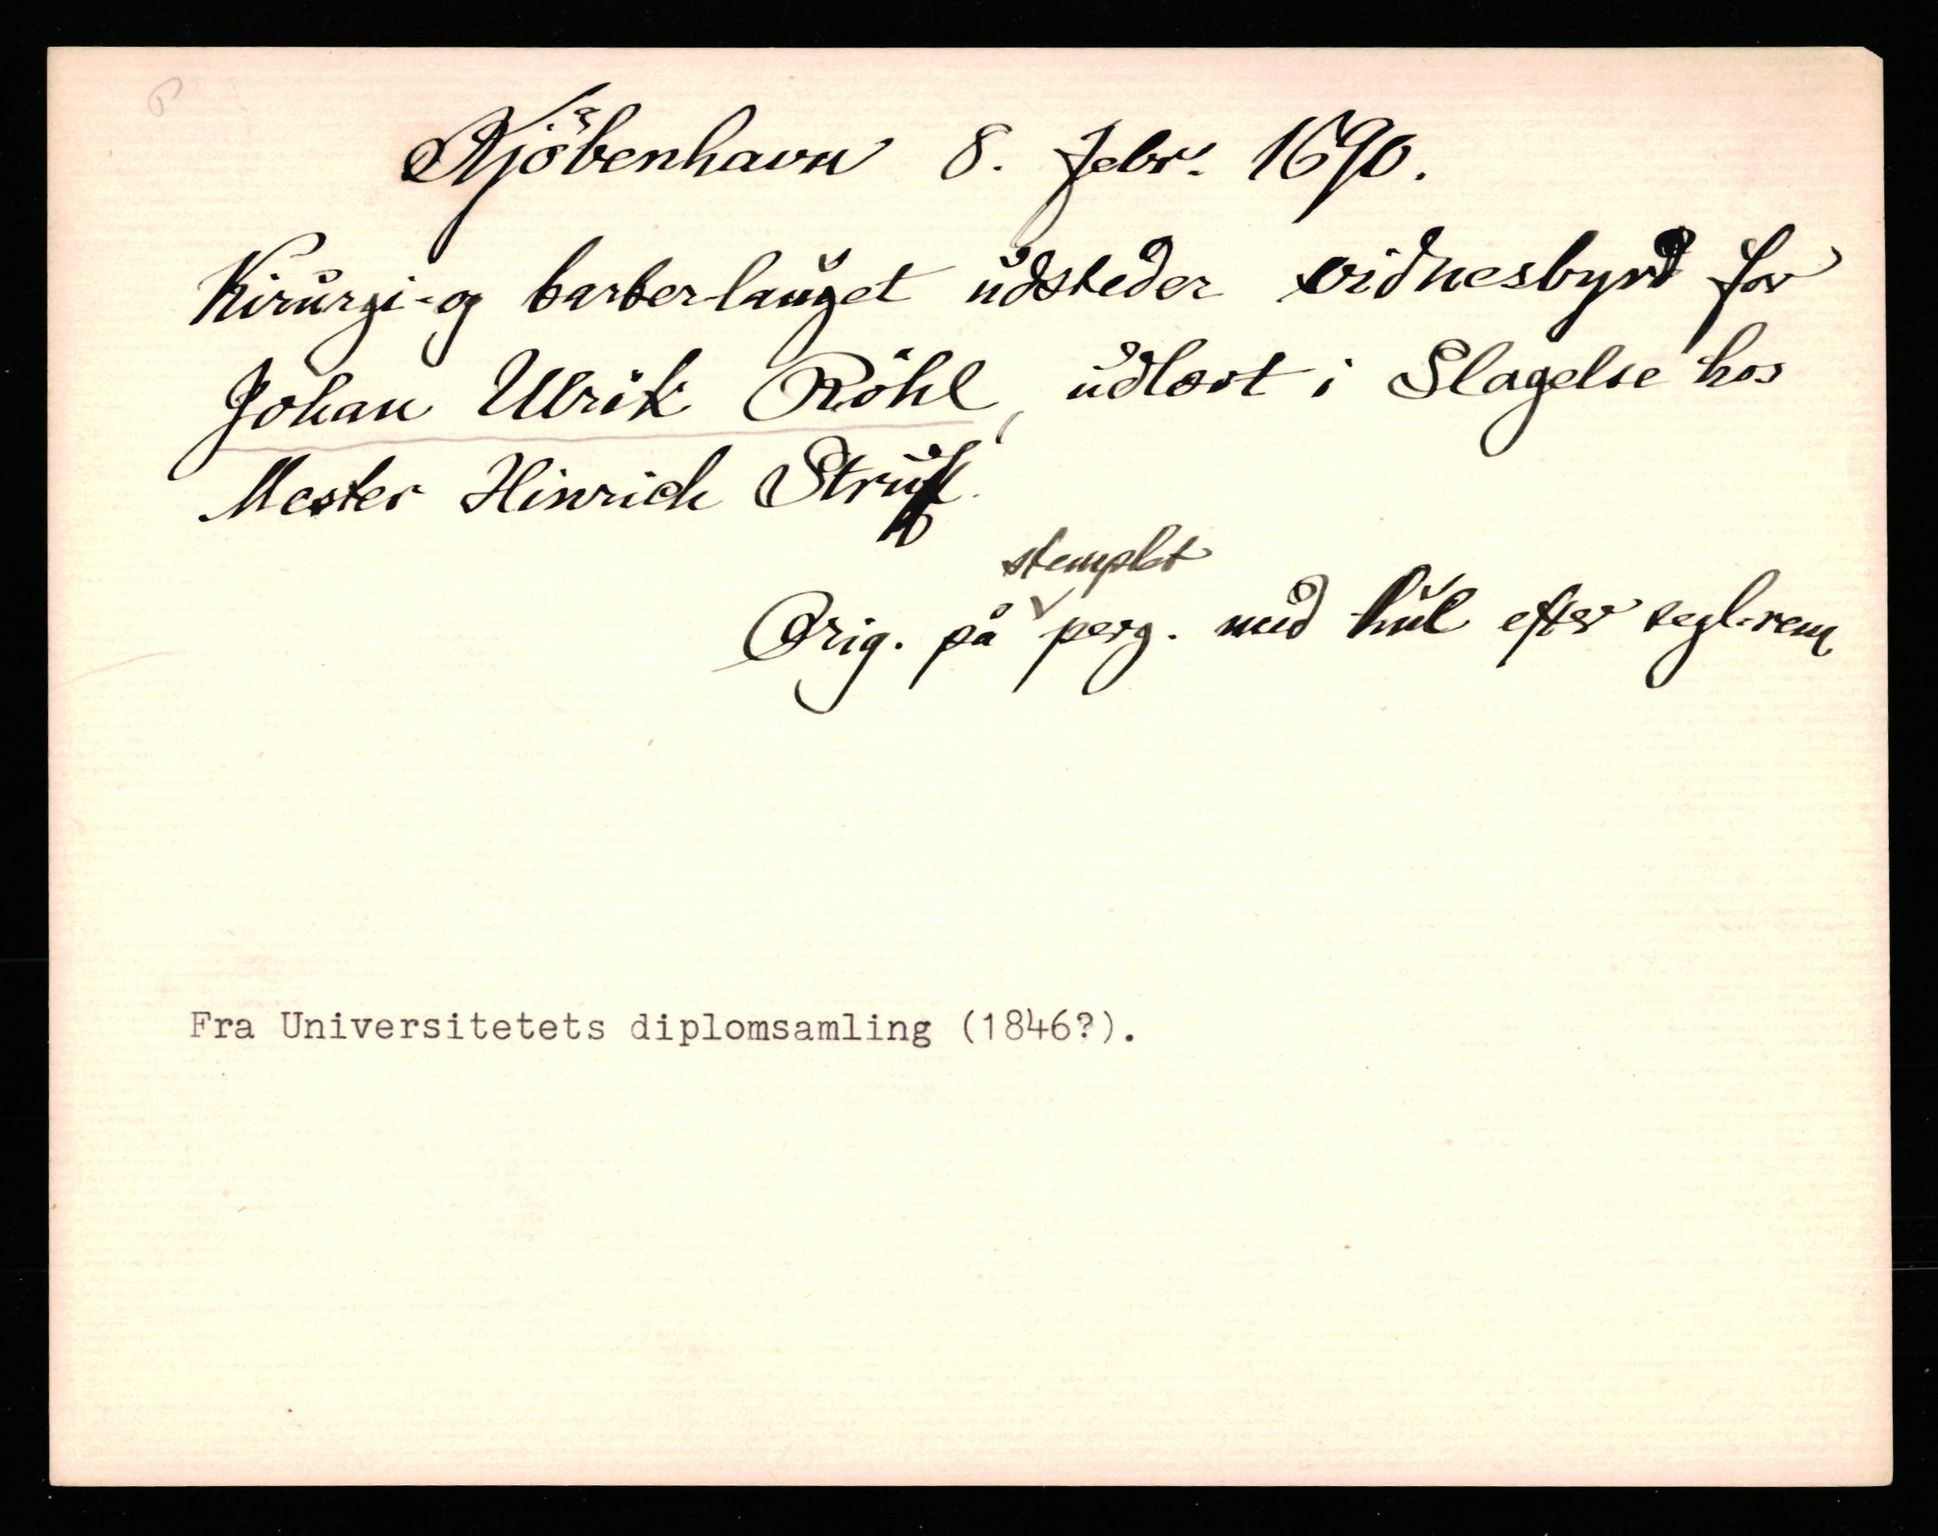 Kjöbenhavn 8. Febr. 1690.
Kirurgi- og barber-lauget udsteder vidnesbyrd for
Johan Ulrik Röhl, udlært i Slagelse hos
Mester Hinrich
stemplet
Orig. på perg. med hul efter segl-rem
Fra Universitetets diplomsamling (1846?).